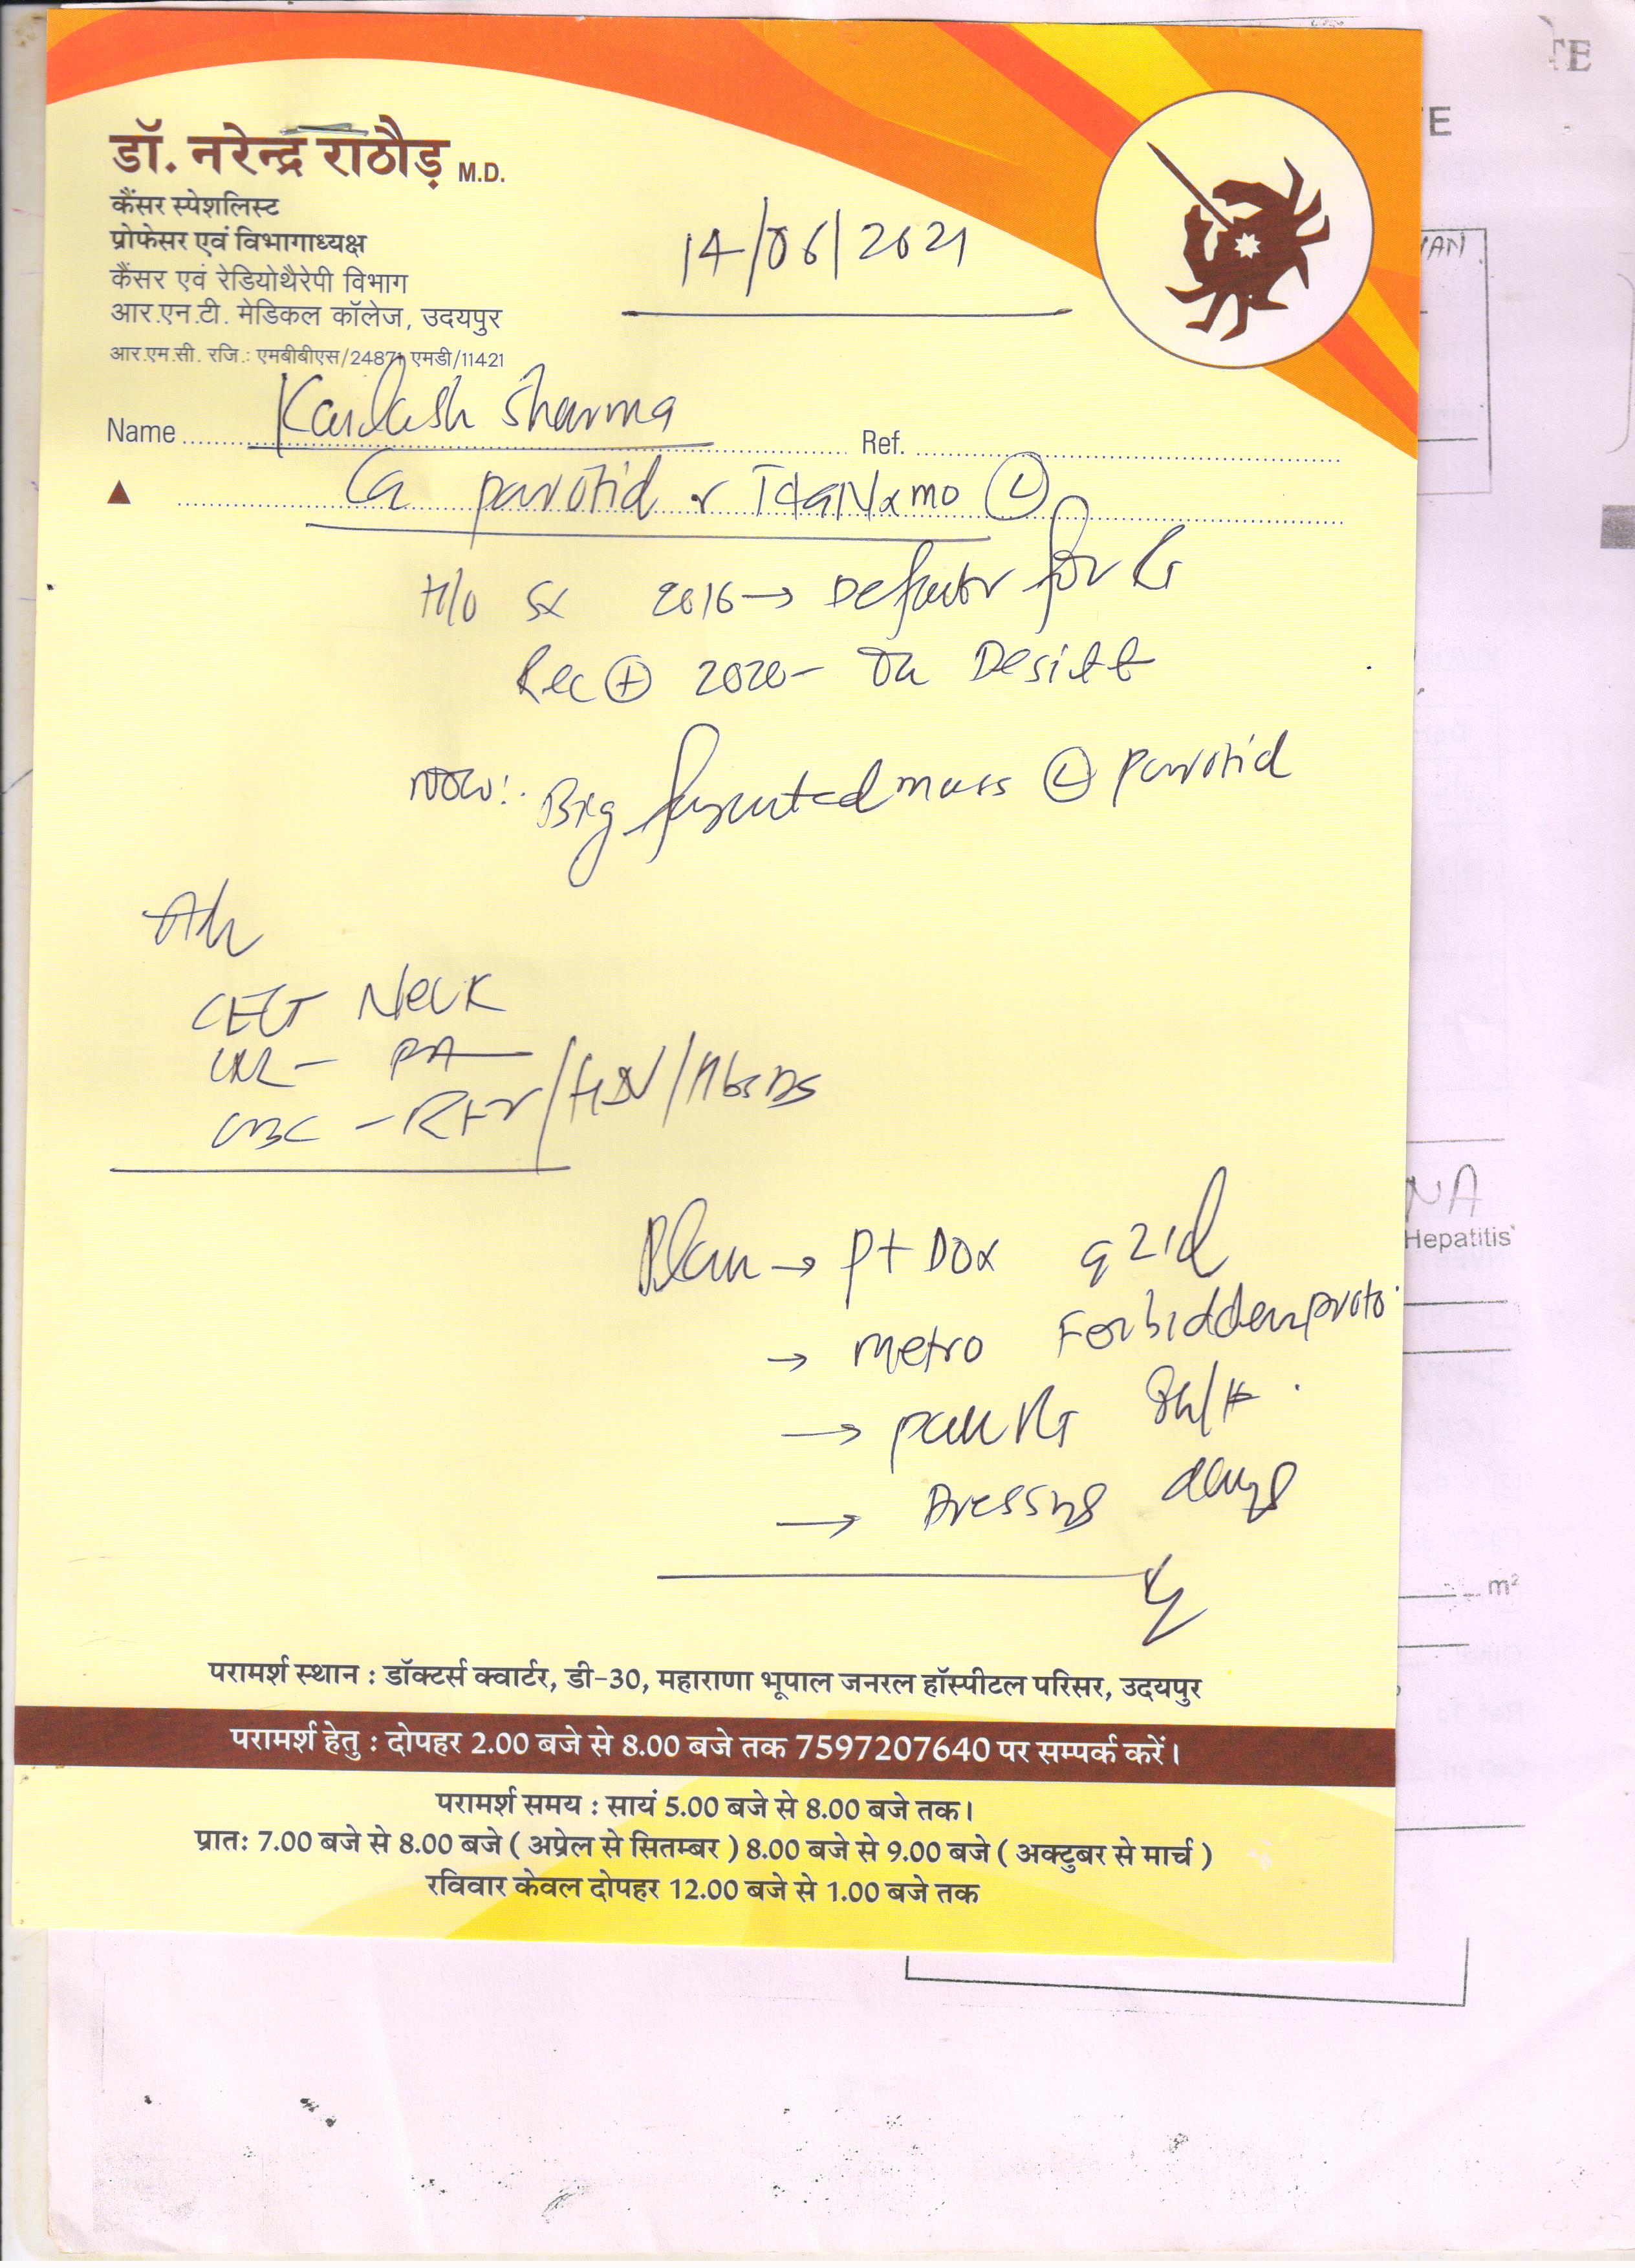 डॉ. नरेन्द्र राठौड़ M.D.
कैंसर स्पेशलिस्ट
प्रोफेसर एवं विभागाध्यक्ष
कैंसर एवं रेडियोथैरेपी विभाग
आर.एन.टी. मेडिकल कॉलेज, उदयपुर
आर.एम.सी. रजि.: एमबीबीएस/24871 एमडी/11421
14/06/2021
Name Kailash Sharma Ref.
Ca parotid T4aNxM0 (L)
H/o Sx 2016 → Defaulter for RT
Rec (+) 2020 -
Now: Big mass (L) parotid
Adv
CECT Neck
CXR - PA
CBC - RFT / HIV / HbsAg
Plan → P + Dox q 21d
→ metro
→ Pall RT
→ Dressing daily
परामर्श स्थान : डॉक्टर्स क्वार्टर, डी-30, महाराणा भूपाल जनरल हॉस्पीटल परिसर, उदयपुर
परामर्श हेतु : दोपहर 2.00 बजे से 8.00 बजे तक 7597207640 पर सम्पर्क करें।
परामर्श समय : सायं 5.00 बजे से 8.00 बजे तक।
प्रातः 7.00 बजे से 8.00 बजे ( अप्रेल से सितम्बर ) 8.00 बजे से 9.00 बजे ( अक्टुबर से मार्च )
रविवार केवल दोपहर 12.00 बजे से 1.00 बजे तक
TE
E
NA
Hepatitis
m²